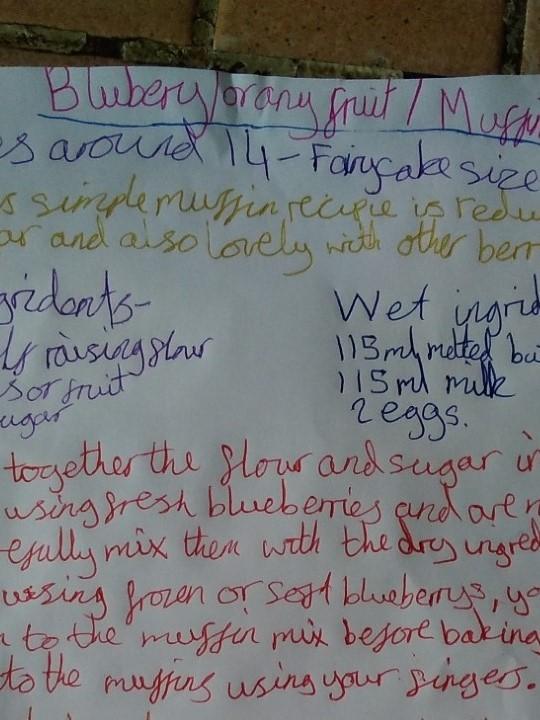 Blubery/orany fruit / Muffin
es around 14 - Fairycake size
s simple muffin recipie is redu
ar and also lovely with other berr
gridants-
lf raising flour
s or fruit
ugar
Wet ingrid
115ml melted bu
115ml milk
2 eggs.
together the flour and sugar in
using fresh blueberries and are n
efully mix them with the dry ingred
using frozen or soft blueberrys, yo
n to the muffin mix before baking
to the muffins using your fingers.